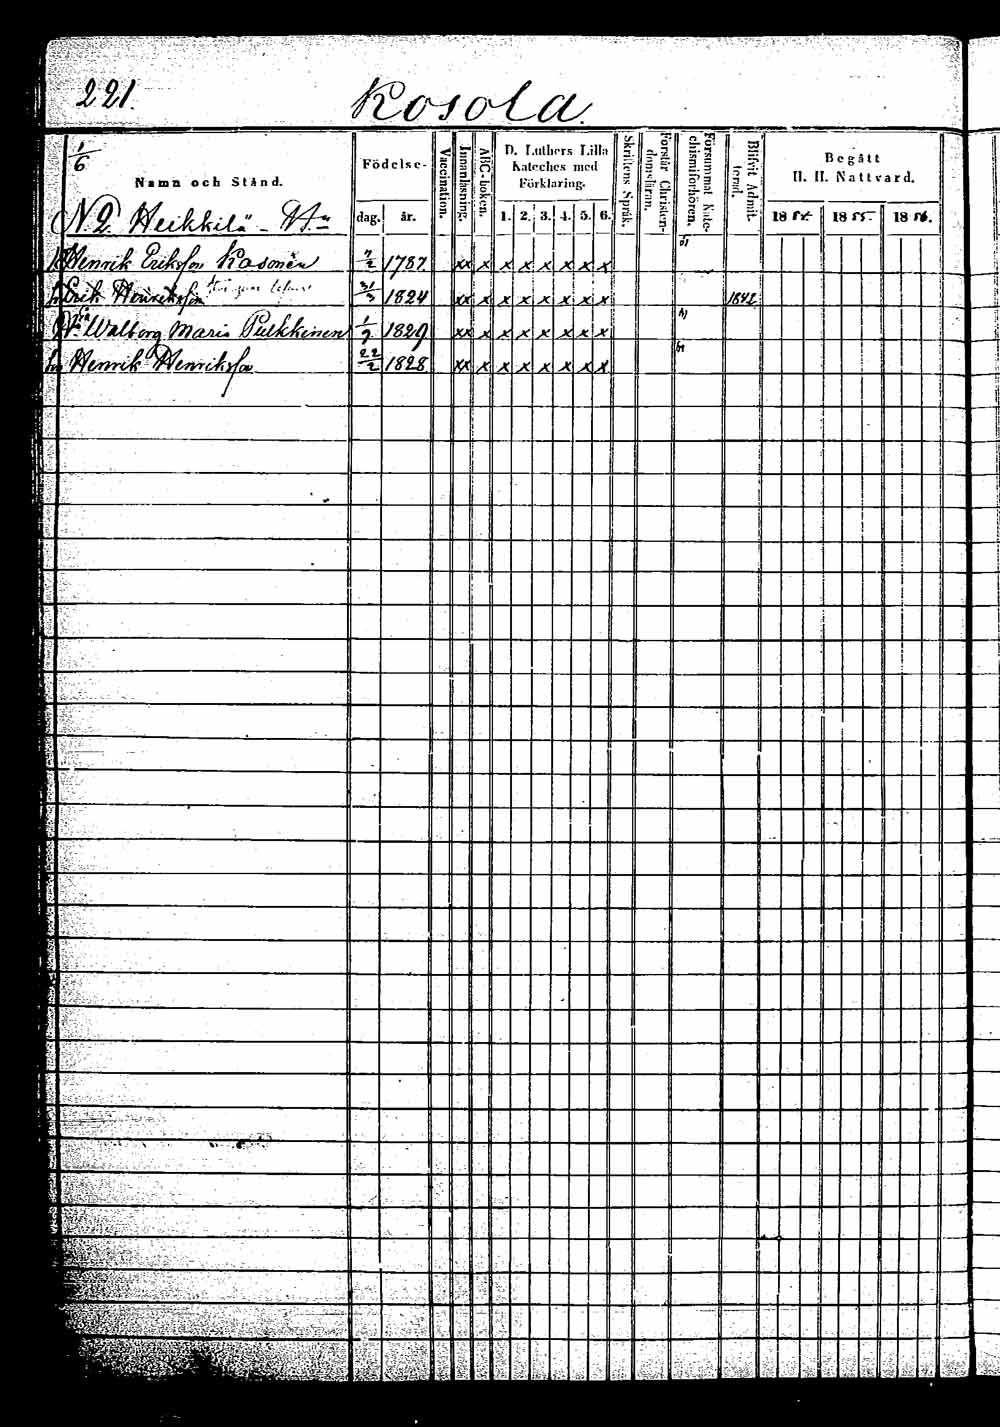 221.
Kosola.
1/6
Namn och Stånd.
Födelse-
dag. år.
Vaccination.
Innanläsning.
ABC-boken.
D. Luthers Lilla
Kateches med
Förklaring.
1. 2. 3. 4. 5. 6.
Skriftens Språk.
Förstår Christen-
domsläran.
Försummat Kate-
chismiförhören.
Blifvit Admit-
terad.
Begått
H. H. Nattvard.
1854. 1855. 1856.
N:2 Heikkilä
Henrik Eriksson Kasonen 7/2 1787. xx x x x x x x x
Erik Henriksson 31/3 1824 xx x x x x x x x 1842
Walborg Maria Pulkkinen 1/9 1829 xx x x x x x x x
Henrik Henriksson 22/2 1828 xx x x x x x x x